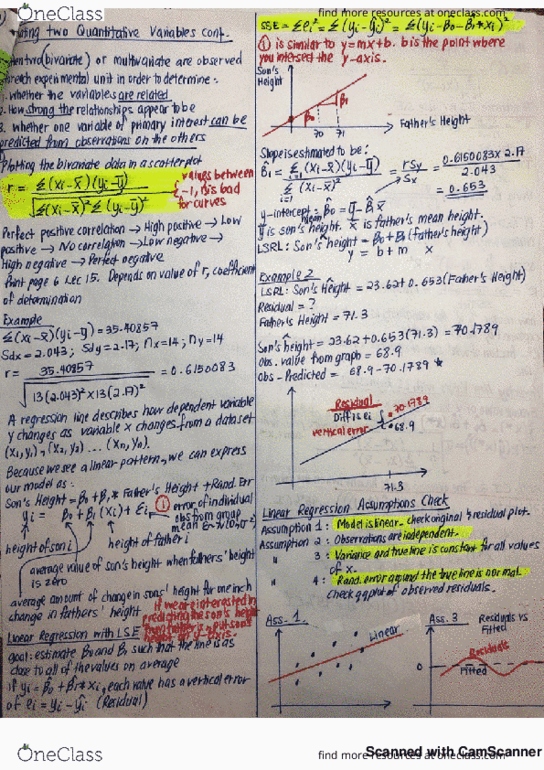 OneClass
find more resources at oneclass.com
Two Quantitative Variables cont.
When two (bivariate) or multivariate are observed
on each experimental unit in order to determine:
1. whether the variables are related
2. How strong the relationships appear to be
3. whether one variable of primary interest can be
predicted from observations on the others
Plotting the bivariate data in a scatterplot
r = Σ(xi-x̄)(yi-ȳ)
√Σ(xi-x̄)² Σ(yi-ȳ)²
values between
-1, 1 is bad
for curves
Perfect positive correlation → High positive → Low
positive → No correlation → Low negative →
High negative → Perfect negative
Print page 6 Lec 15. Depends on value of r, coefficient
of determination
Example
Σ(xi-x̄)(yi-ȳ) = 35.40857
Sdx = 2.043; Sdy = 2.17; nx = 14; ny = 14
r = 35.40857 = 0.6150083
√13(2.043)² × 13(2.17)²
A regression line describes how dependent variable
y changes as variable x changes from a dataset
(x1, y1), (x2, y2) ... (xn, yn).
Because we see a linear pattern, we can express
our model as:
Son's Height = β0 + β1 * Father's Height + Rand. Err
yi = β0 + β1 (xi) + Ei
① error of individual
obs from group
height of son i
height of father i
average value of son's height when fathers' height
is zero
average amount of change in sons' height for one inch
change in fathers' height.
If we are interested in
predicting the son's height
y-axis.
Linear Regression with LSE
goal: estimate β0 and β1 such that the line is as
close to all of the values on average
if ŷi = β̂0 + β̂1 * xi, each value has a vertical error
of ei = yi - ŷi (Residual)
SSE = Σei² = Σ(yi-ŷi)² = Σ(yi-β0-β1*xi)²
① is similar to y=mx+b. b is the point where
you intersect the y-axis.
Son's
Height
β0
β1
70 71
Father's Height
Slope is estimated to be:
β̂1 = Σ(xi-x̄)(yi-ȳ) = rSy = 0.6150083 x 2.17
i=1
Σ(xi-x̄)² Sx 2.043
i=1
= 0.653
y-intercept: β̂0 = ȳ - β̂1x̄
Mean
ȳ is son's height. x̄ is father's mean height.
LSRL: Son's Height = β0 + β1 (father's height)
y = b + m x
Example 2
LSRL: Son's Height = 23.62 + 0.653 (Father's Height)
Residual = ?
Father's Height = 71.3
Son's height = 23.62 + 0.653(71.3) = 70.1789
Obs. value from graph = 68.9
Obs - Predicted = 68.9 - 70.1789 *
Residual
Diff is ei
vertical error
70.1789
68.9
71.3
Linear Regression Assumptions Check
Assumption 1: Model is linear - check original & residual plot.
Assumption 2: Observations are independent.
" 3: Variance around true line is constant for all values
of x.
" 4: Rand. error around the true line is normal.
check qq plot of observed residuals.
Ass. 1
Linear
Ass. 3
Residuals vs
Fitted
Residuals
0
Fitted
OneClass
find more resources at oneclass.com
Scanned with CamScanner